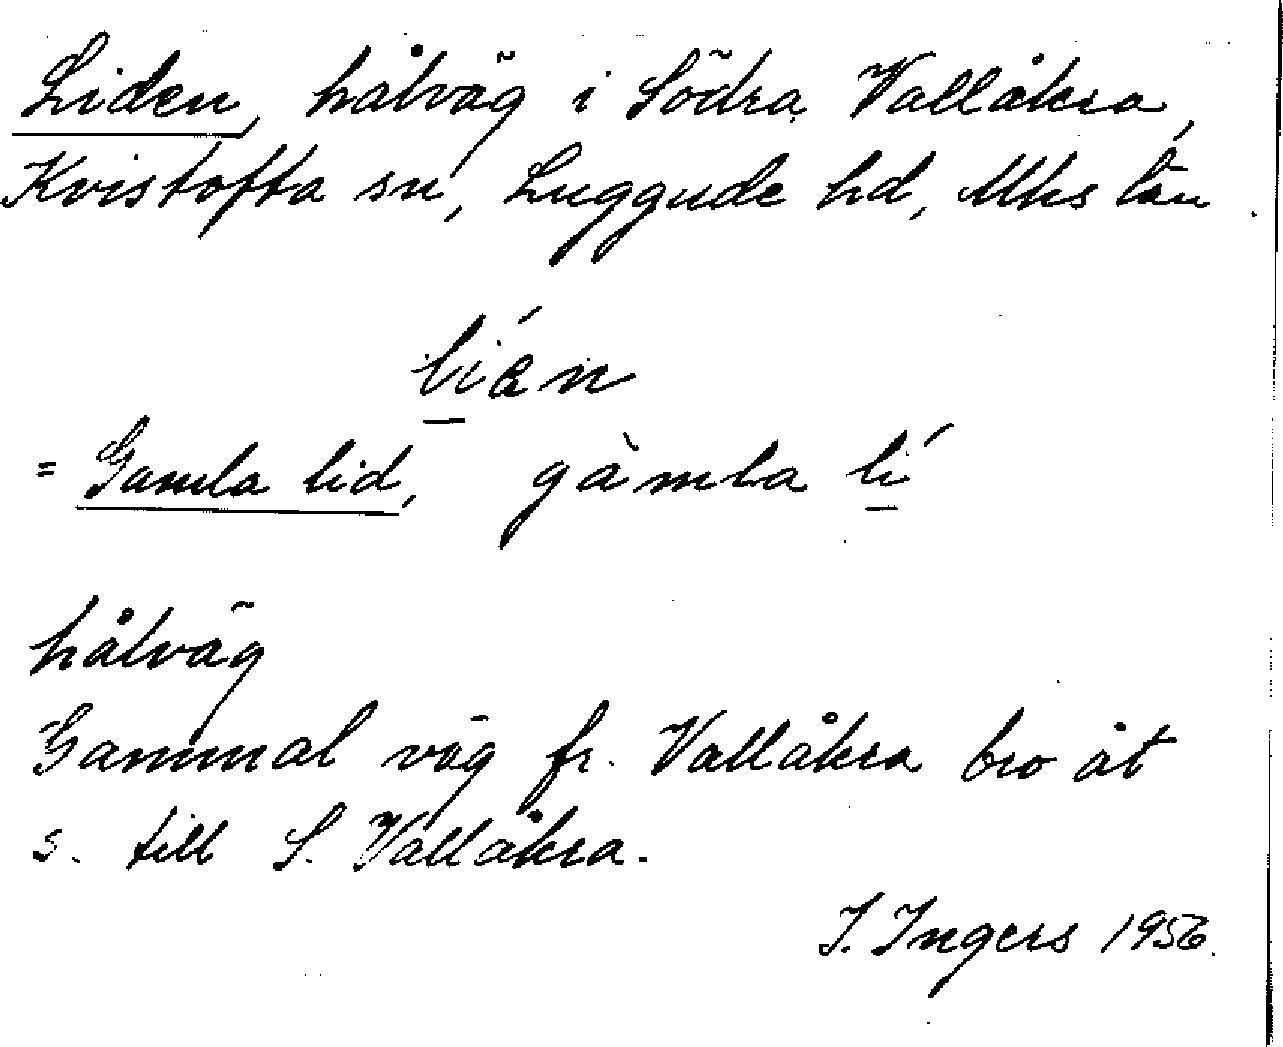 Liden, hålväg i Södra Vallåkra,
Kvistofta sn, Luggude hd, Mhs län.
lián
= Gamla lid, gàmla lí
hålväg
Gammal väg fr. Vallåkra bro åt
s. till S. Vallåkra.
I. Ingers 1956.